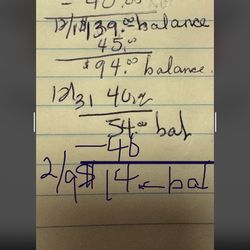 - 40.00
12/1 $139.00 balance
45.00
$94.00 balance.
12/31 40.00
54.00 bal
- 40
2/9 $14.- bal